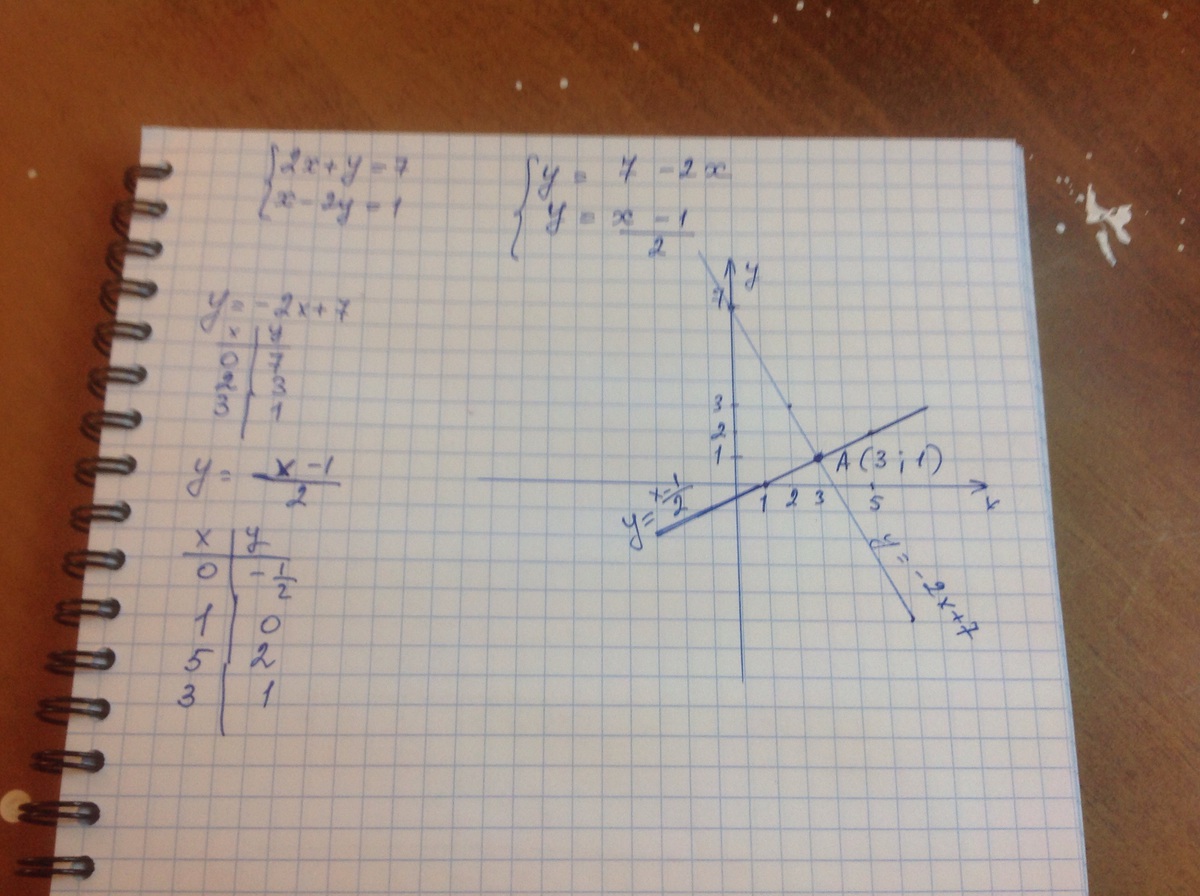 {2x+y=7
x-2y=1
{y = 7 - 2x
y = x - 1
2
y = -2x+7
x | y
0 | 7
2 | 3
3 | 1
y = x - 1
2
x | y
0 | - 1/2
1 | 0
5 | 2
3 | 1
y
7
3
2
1
A (3 ; 1)
1 2 3 5
x
y = x-1/2
y = -2x+7